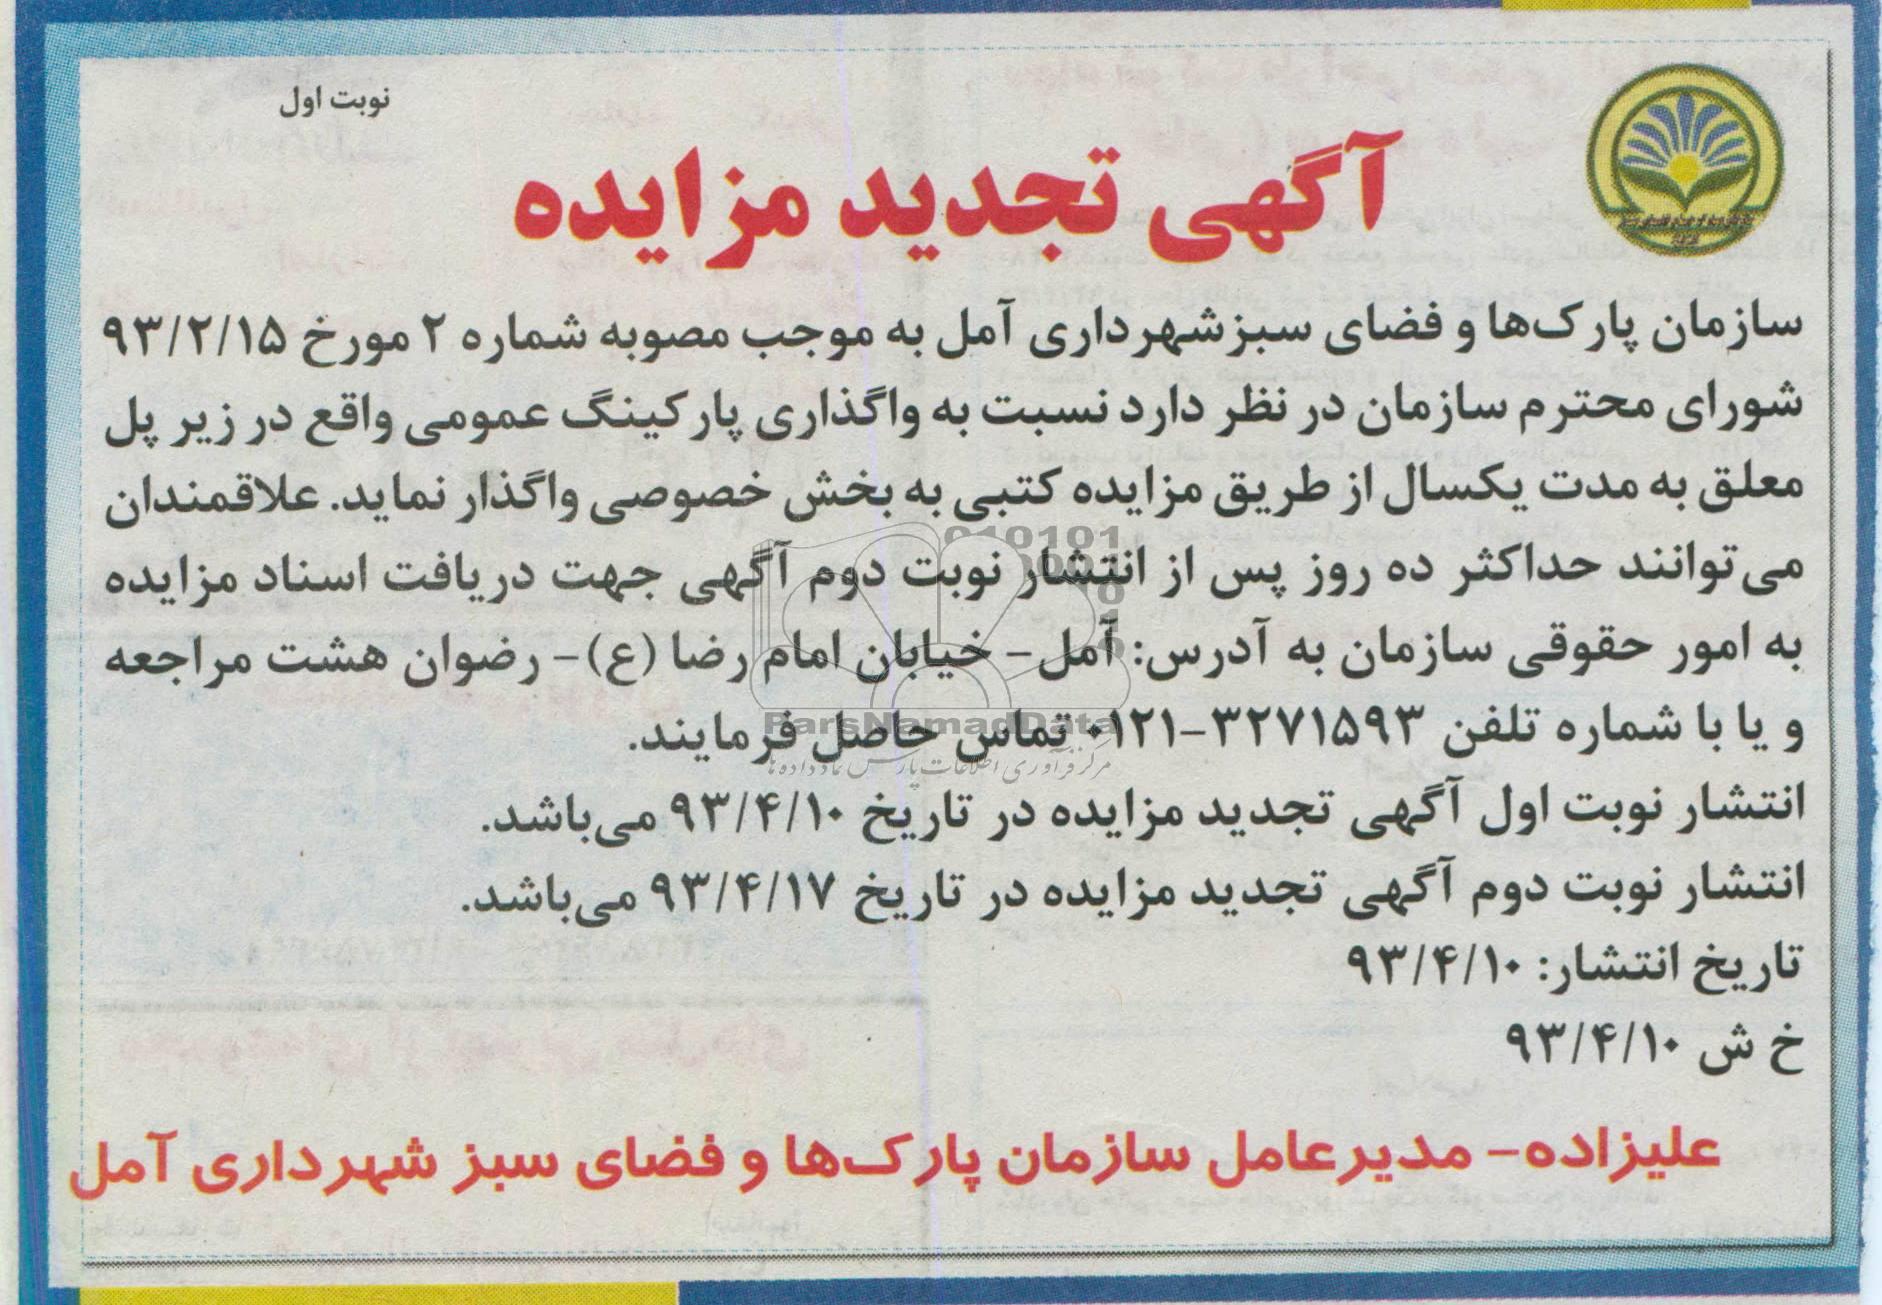 نوبت اول
آگهی تجدید مزایده
سازمان پارک‌ها و فضای سبز شهرداری آمل به موجب مصوبه شماره ۲ مورخ ۹۳/۲/۱۵
شورای محترم سازمان در نظر دارد نسبت به واگذاری پارکینگ عمومی واقع در زیر پل
معلق به مدت یکسال از طریق مزایده کتبی به بخش خصوصی واگذار نماید. علاقمندان
می‌توانند حداکثر ده روز پس از انتشار نوبت دوم آگهی جهت دریافت اسناد مزایده
به امور حقوقی سازمان به آدرس: آمل- خیابان امام رضا (ع)- رضوان هشت مراجعه
و یا با شماره تلفن ۳۲۷۱۵۹۳-۰۱۲۱ تماس حاصل فرمایند.
ParsNamadData
مرکز فرآوری اطلاعات پارس نماد داده ها
انتشار نوبت اول آگهی تجدید مزایده در تاریخ ۹۳/۴/۱۰ می‌باشد.
انتشار نوبت دوم آگهی تجدید مزایده در تاریخ ۹۳/۴/۱۷ می‌باشد.
تاریخ انتشار: ۹۳/۴/۱۰
خ ش ۹۳/۴/۱۰
علیزاده- مدیرعامل سازمان پارک‌ها و فضای سبز شهرداری آمل